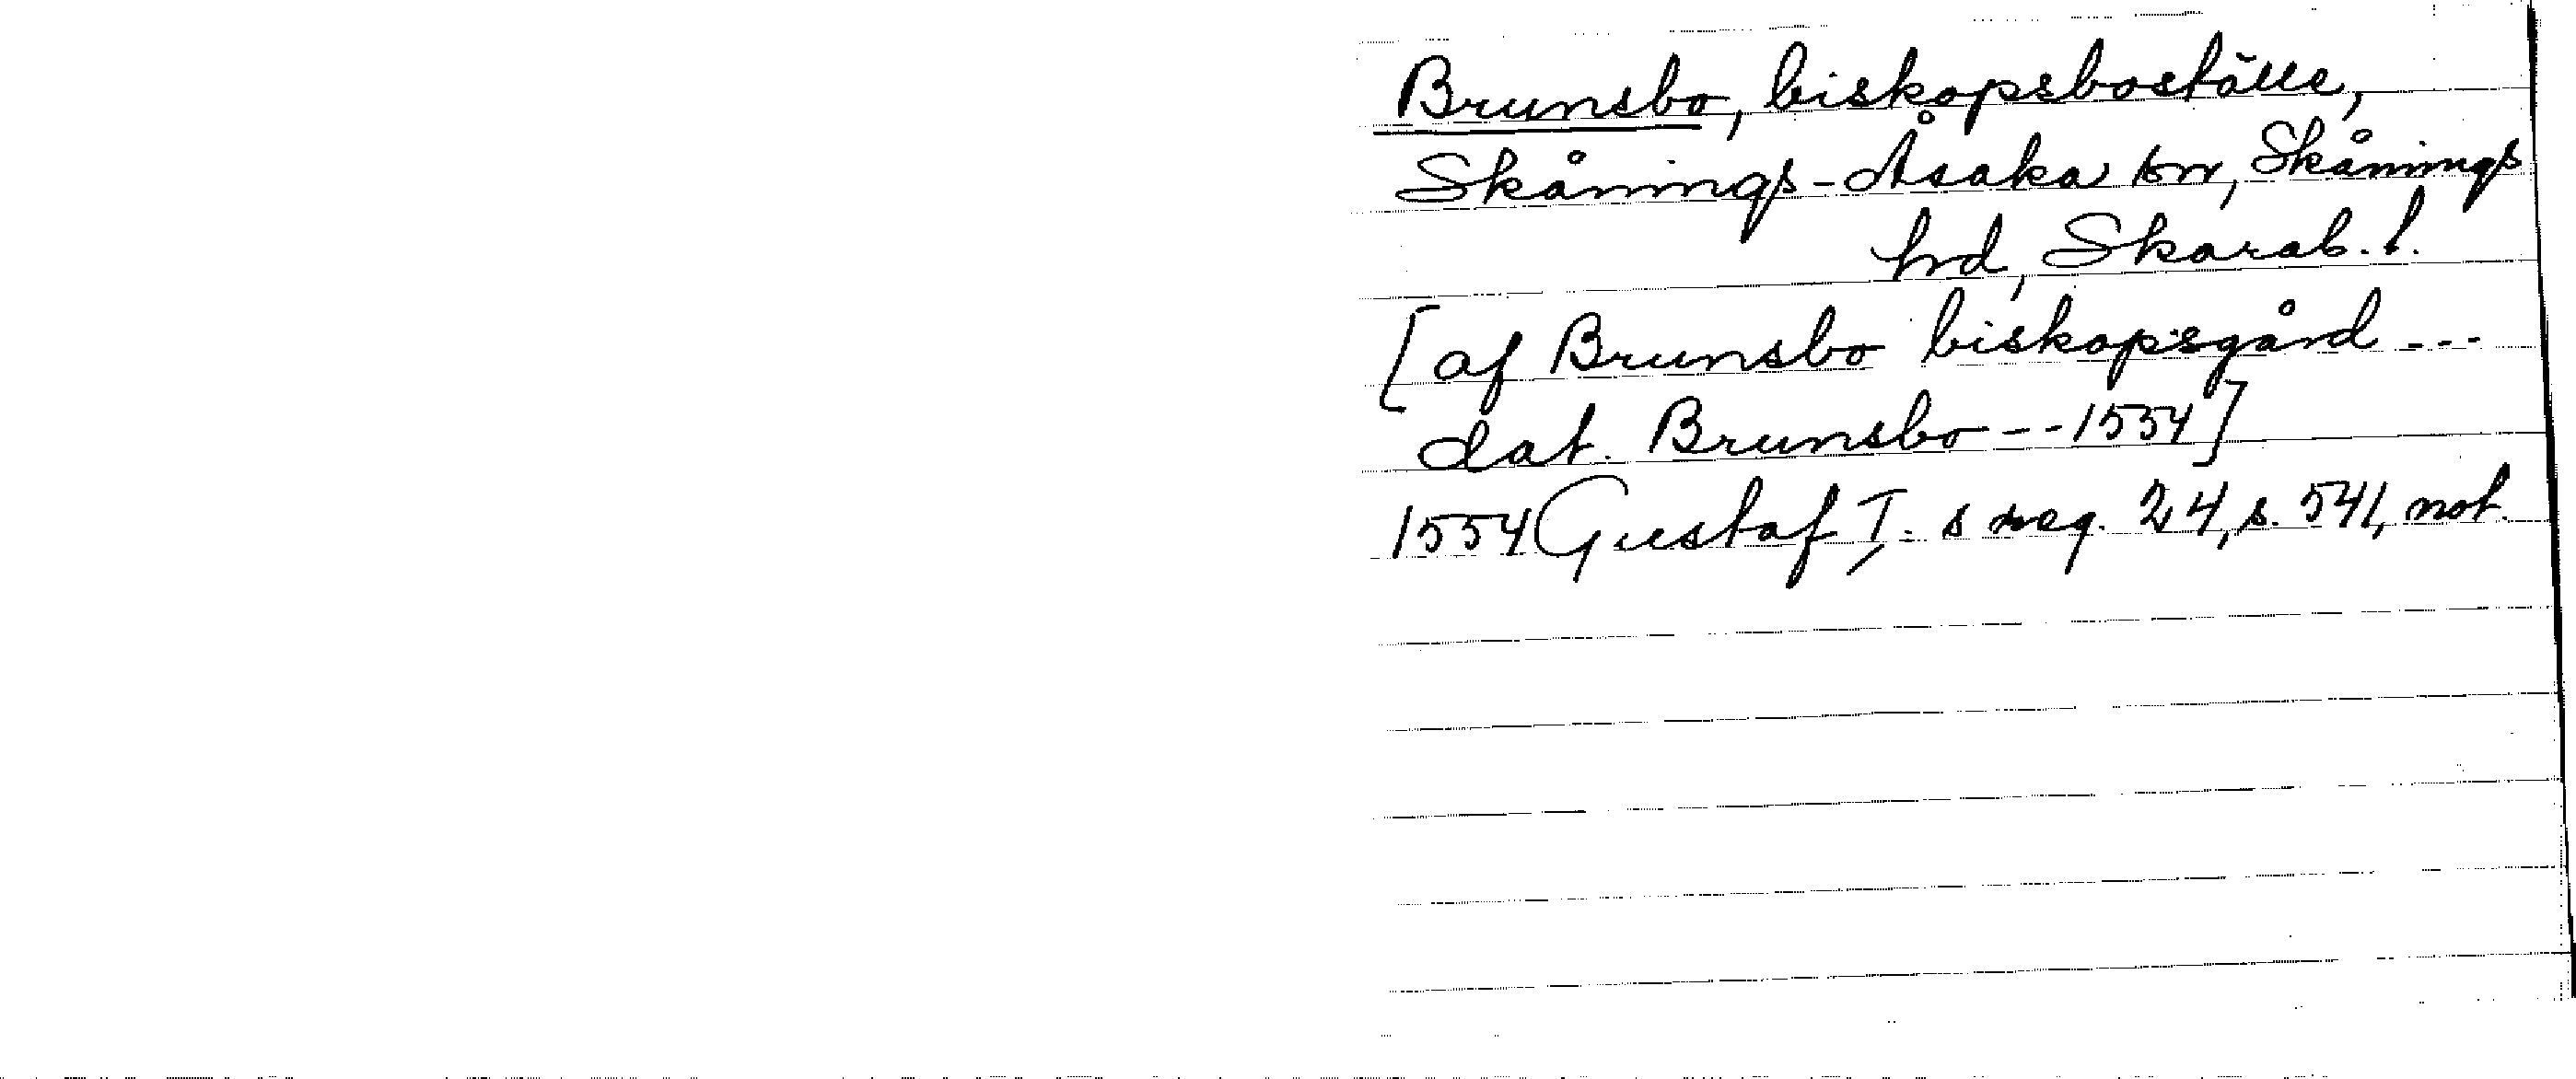 Brunsbo, biskopsboställe,
Skånings-Åsaka sn, Skånings
hd, Skarab. l.
[af Brunsbo biskopsgård ---
dat. Brunsbo -- 1554]
1554 Gustaf I:s reg. 24, s. 541, not.